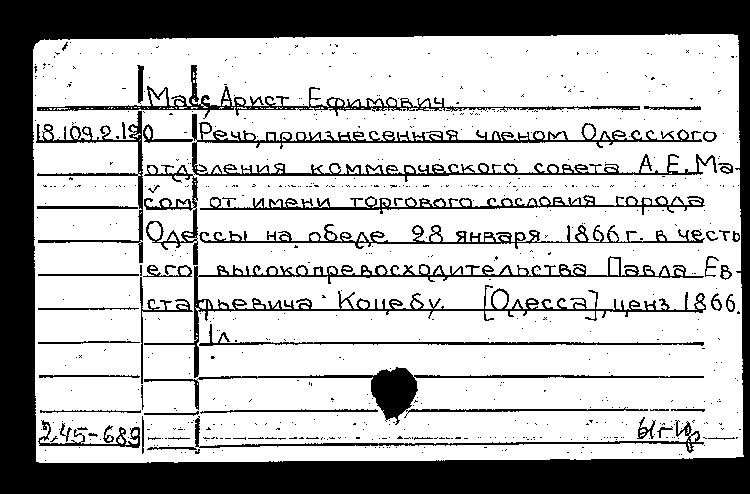 Масс, Арист Ефимович.
18.109.2.120 Речь, произнесенная членом Одесского
отделения коммерческого совета А. Е. Ма-
сом от имени торгового сословия города
Одессы на обеде 28 января 1866 г. в честь
его высокопревосходительства Павла Ев-
стафьевича Коцебу. [Одесса], ценз. 1866.
1 л.
245-683